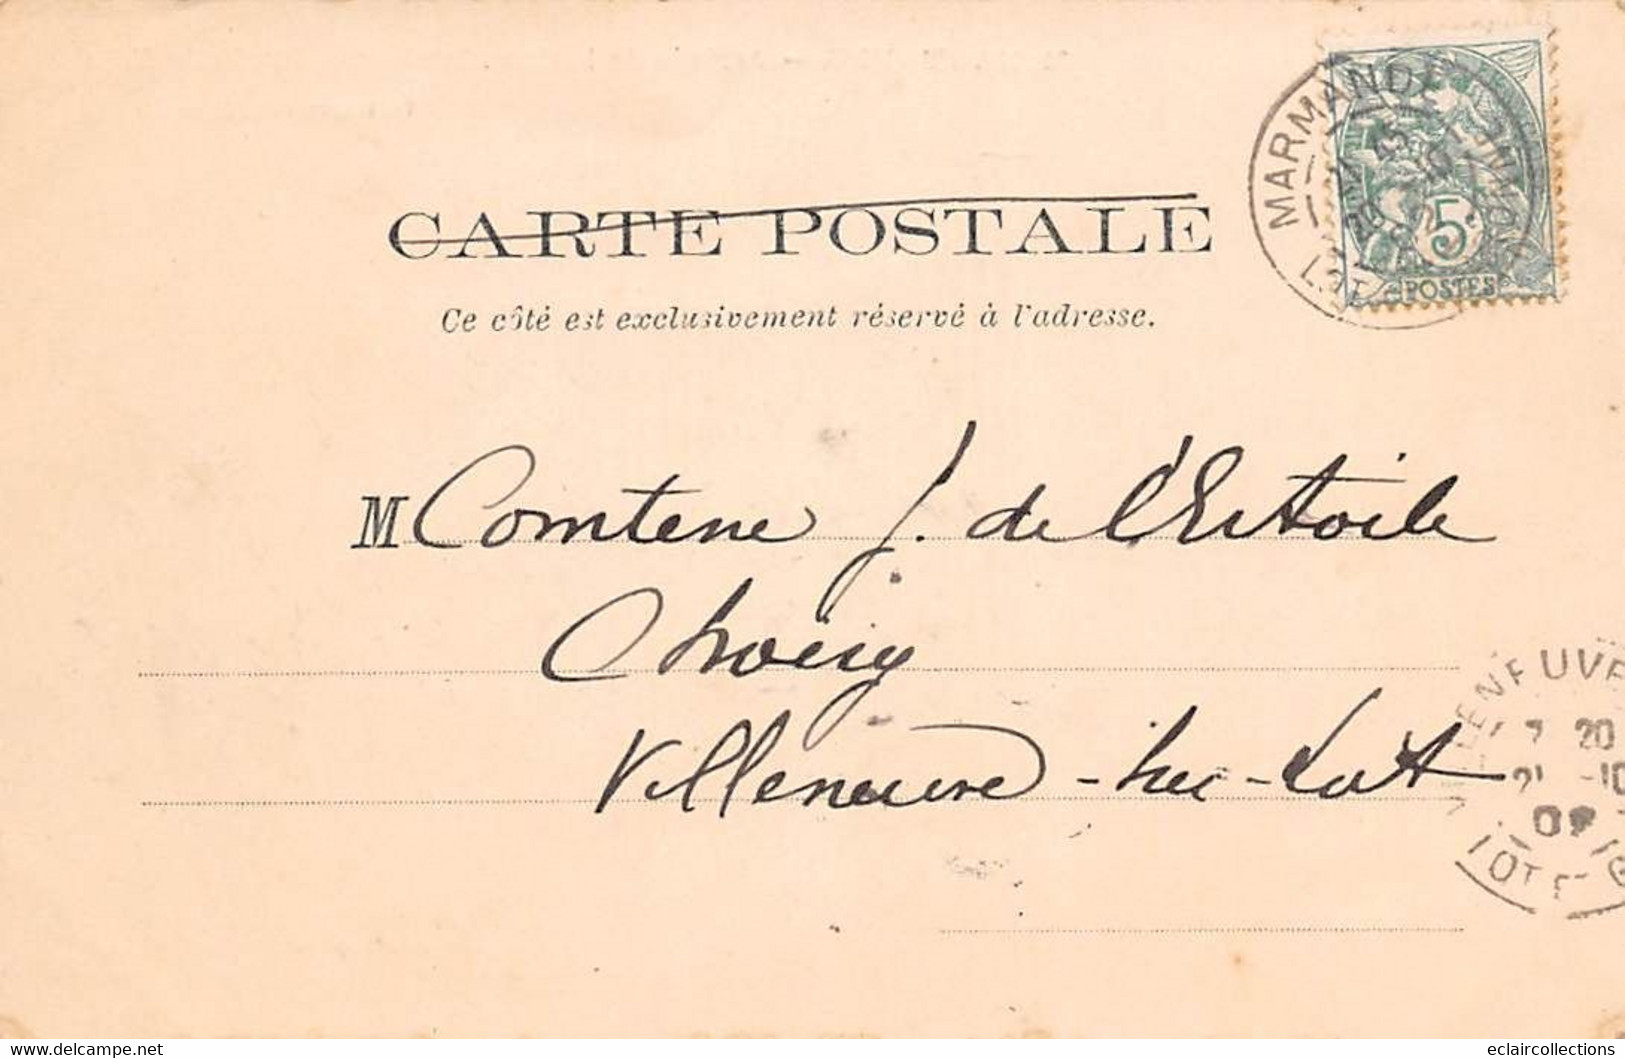 MARMANDE
LOT ET GARONNE
5c
POSTES
CARTE POSTALE
Ce côté est exclusivement réservé à l'adresse.
M Comtesse J. de l'Estoile
Choisy
Villeneuve-sur-Lot
VILLENEUVE
7 20
21 -10
LOT ET G
www.delcampe.net
eclaircollections